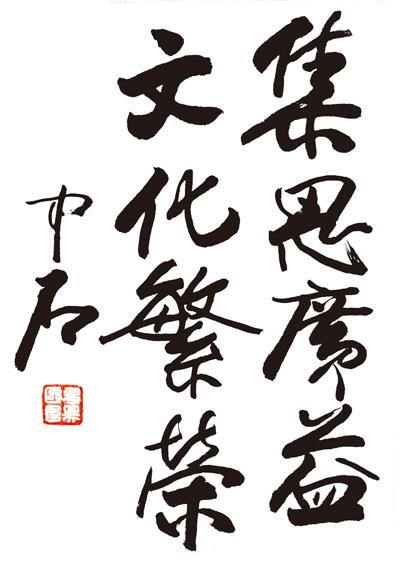 集思廣益
文化繁荣
中石